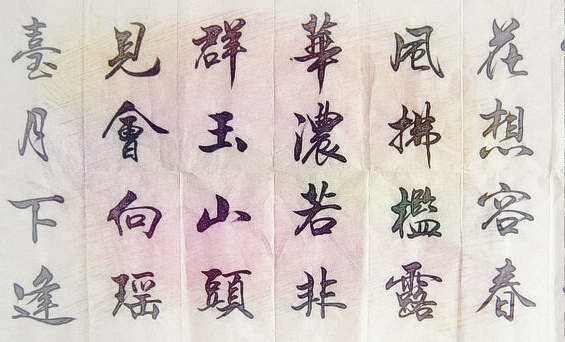 花想容春
風拂檻露
華濃若非
群玉山頭
見會向瑶
臺月下逢